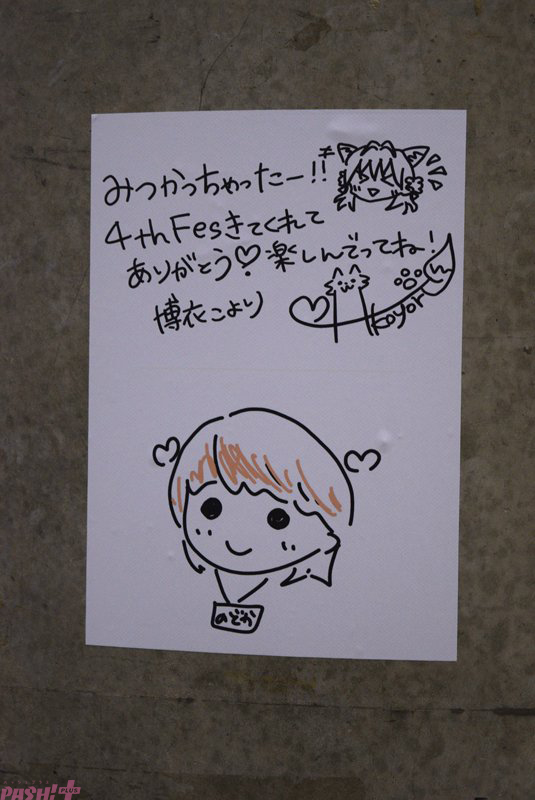 みつかっちゃったー!!
4thFesきてくれて
ありがとう♡楽しんでってね!
博衣こより
Koyori
のどか
PASH! PLUS